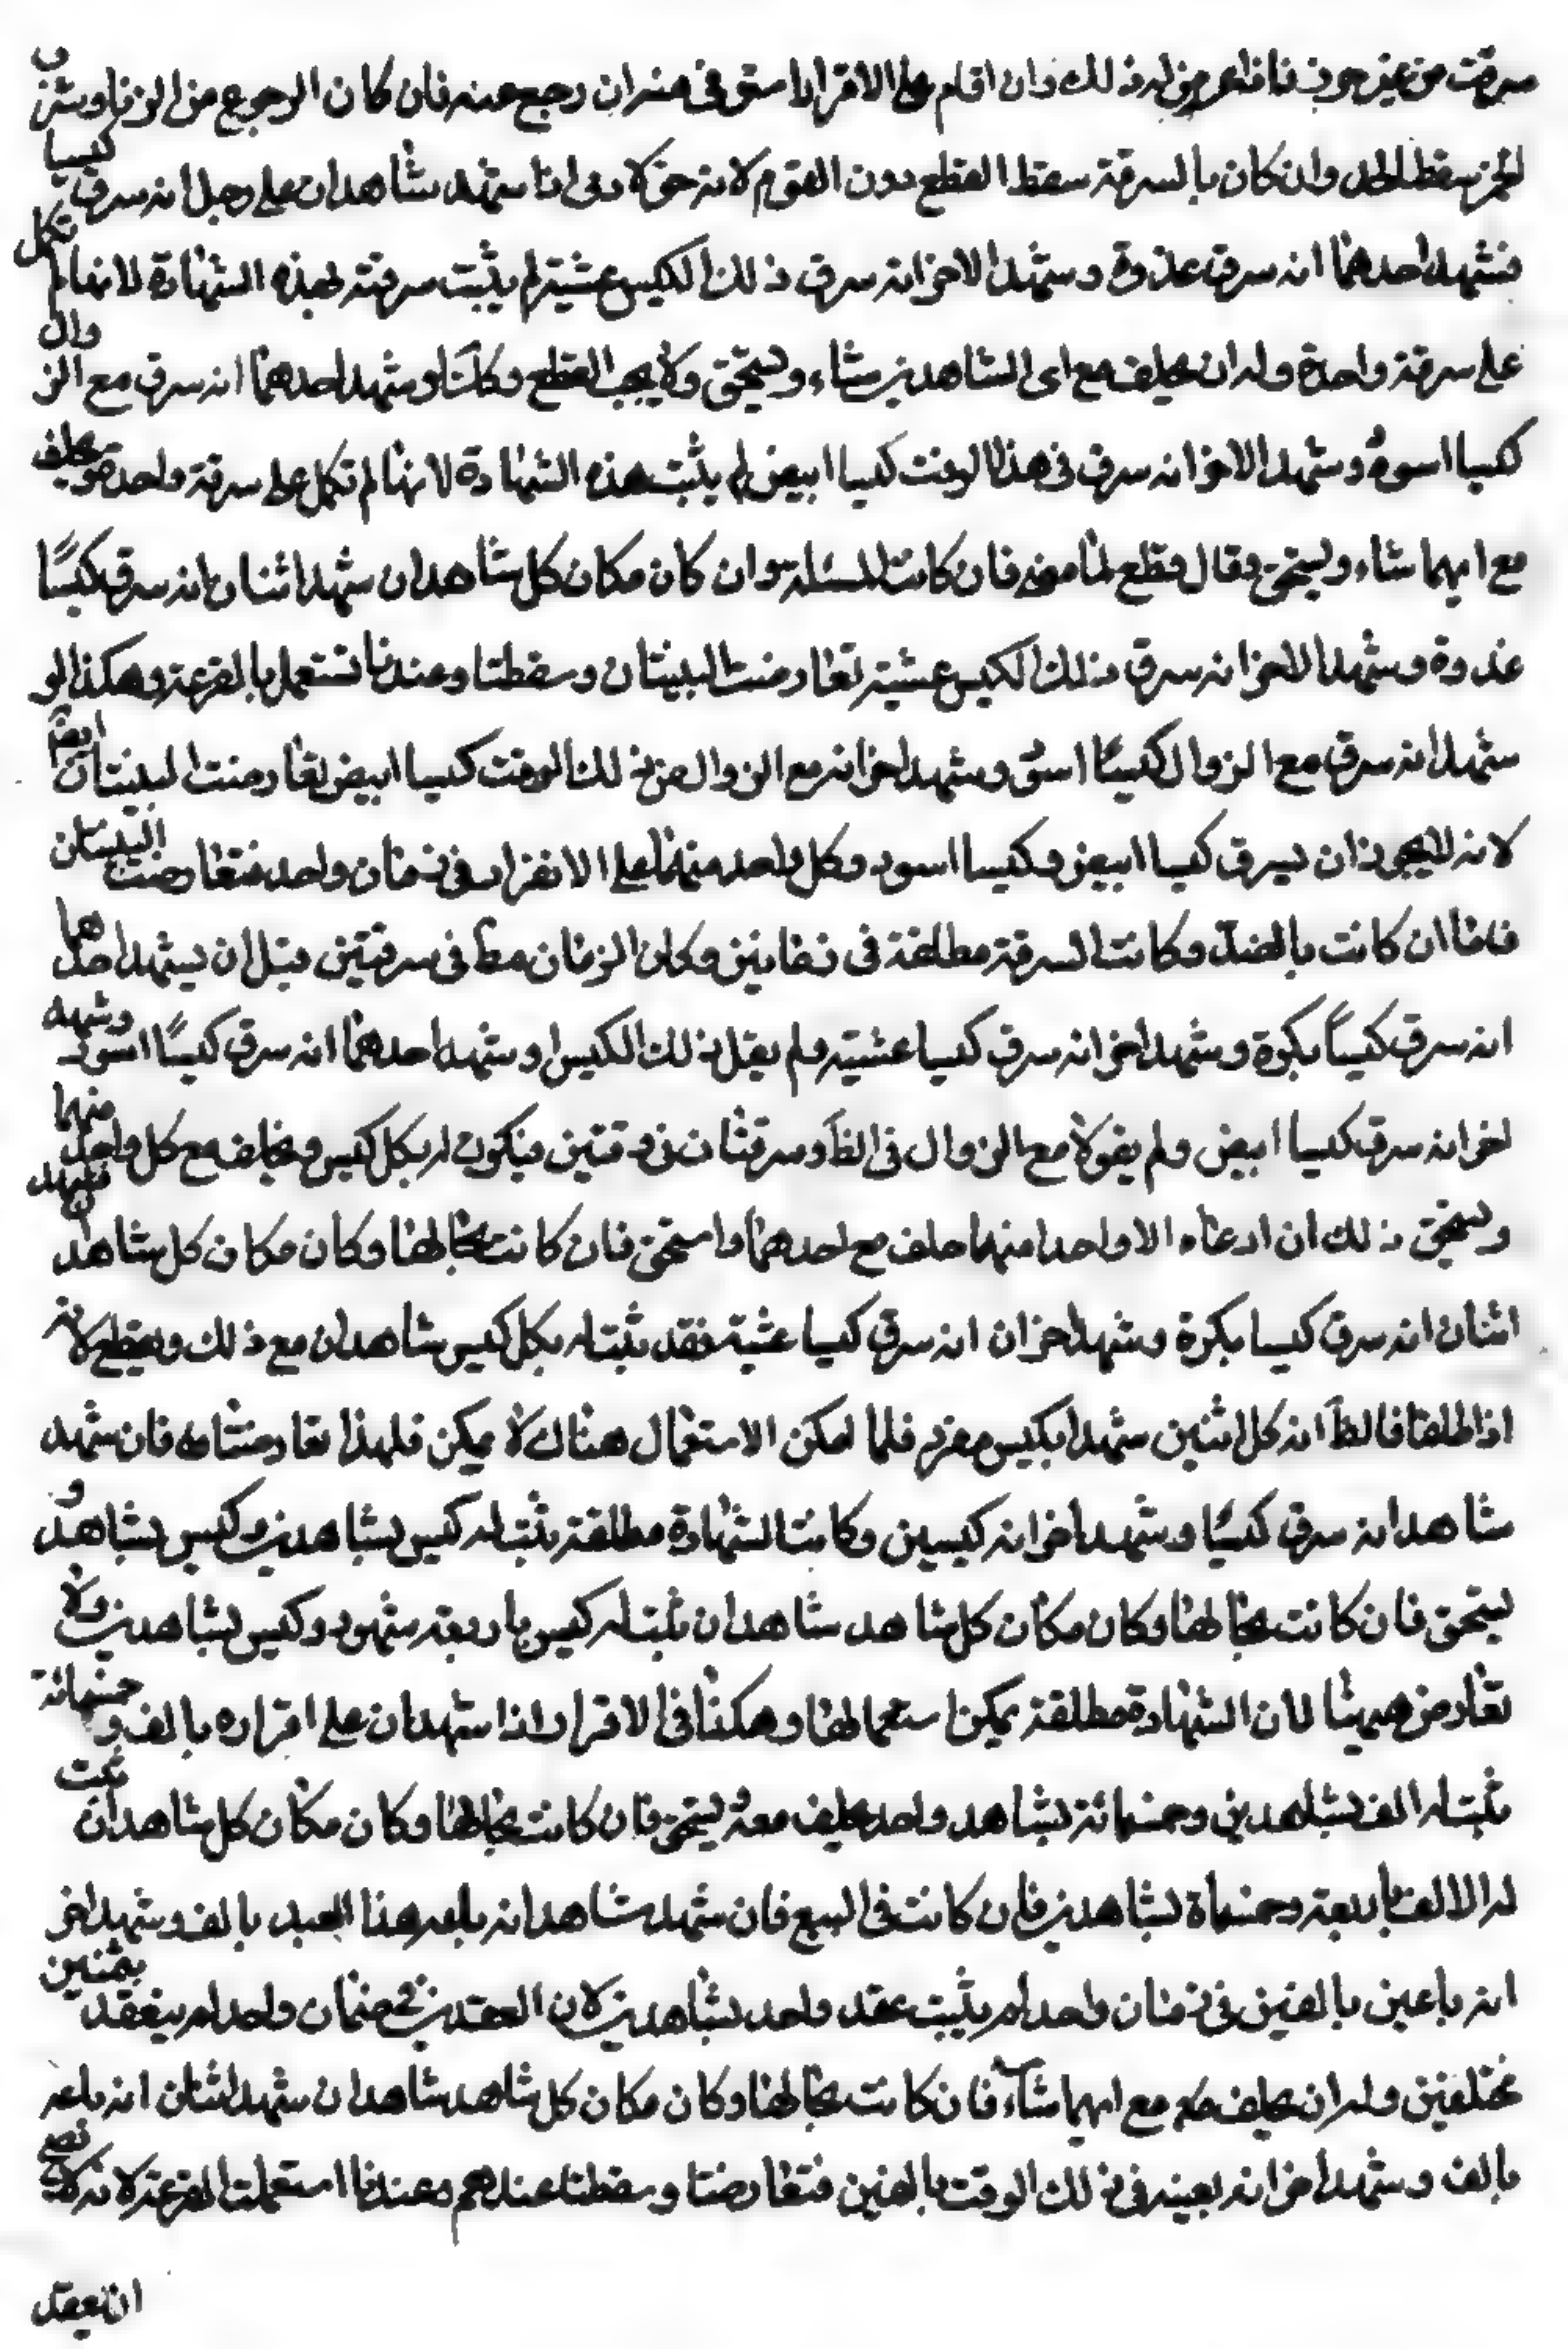 سرقت من غير حرز فاذا عرض له ذلك وان اقام على الاقرار استوفى منه وان رجع عنه فان كان الرجوع من الزنا وشرب
الخمر سقط الحد وان كان بالسرقة سقط القطع دون الغرم لانه حق لادمى اذا شهد شاهدان على رجل انه سرق كيسا
فشهد احدهما انه سرق غدوة وشهد الاخر انه سرق ذلك الكيس عشية لم يثبت سرقته بهذه الشهادة لانها لم تكمل
على سرقة واحدة وله ان يحلف مع اى الشاهدين شاء ويستحق ولا يجب القطع وكك لو شهد احدهما انه سرق مع الزوال
كيسا اسود وشهد الاخر انه سرق فى هذا الوقت كيسا ابيض لم يثبت هذه الشهادة لانها لم تكمل على سرقة واحدة ويحلف
مع ايهما شاء ويستحق وقال قطع لما مضى فان كانت المسئلة وان كان مكان كل شاهدان شهد اثنان انه سرق كيسًا
غدوة وشهد الاخر انه سرق ذلك الكيس عشية تعارضت البينتان وسقطتا وعندنا تستعمل بالقرعة وهكذا لو
شهد انه سرق مع الزوال كيسًا اسود وشهد اخر انه مع الزوال من ذلك الوقت كيسا ابيض تعارضت البينتان ايضا
لانه لا يجوز ان يسرق كيسا ابيض وكيسا اسود وكل واحد منهما على الانفراد فى زمان واحد فتعارضت البينتان
فاما ان كانت بالضد وكانت السرقة مطلقة فى زمانين وكان الزمان مط فى سرقتين مثل ان يشهد احدهما
انه سرق كيسًا بكرة وشهد اخر انه سرق كيسا عشية ولم يقل ذلك الكيس او شهد احدهما انه سرق كيسًا اسود وشهد
اخر انه سرق كيسا ابيض ولم يقولا مع الزوال فى الظ وسرقتان فى وقتين فيكون له بكل كيس ويحلف مع كل واحد منهما
ويستحق ذلك ان ادعاه الا واحدا منهما حلف مع احدهما واستحق فان كانت بحالها وكان مكان كل شاهد شاهدان فشهد
اثنان انه سرق كيسا بكرة وشهد اخران انه سرق كيسا عشية فقد ثبت له بكل كيس شاهدان مع ذلك ويقطع لانه
اذا اطلقا فالظ انه كل اثنين شهدا بكيس مفرد فلما امكن الاستعمال هناك لا يمكن فلهذا تعارضتا فان شهد
شاهد انه سرق كيسًا وشهد اخر انه كيسين وكانت الشهادة مطلقة يثبت له كيس بشاهدين وكيس بشاهد و
يستحق فان كانت بحالها وكان مكان كل شاهد شاهدان ثبت له كيس باربعة شهود وكيس بشاهدين ولا
تعارض هيهنا لان الشهادة مطلقة يمكن استعمالها وهكذا فى الاقرار اذا شهدان على اقراره بالف وخمسمائة
ثبت له الف بشاهدين وخمسمائة بشاهد واحد يحلف معه ويستحق فان كانت بحالها وكان مكان كل شاهدان ثبت
له الالف باربعة وخمسماة بشاهدين فان كانت فى البيع فان شهد شاهد انه باعه هذا العبد بالف وشهد اخر
انه باعين بالفين فى زمان واحد لم يثبت عقد واحد بشاهدين لان العقدين فى زمان واحد لم ينعقد بثمنين
مختلفين وله ان يحلف مع ايهما شاء فان كانت بحالها وكان مكان كل شاهد شاهدان شهد اثنان انه باعه
بالف وشهد اخر انه بعينه فى ذلك الوقت بالفين فتعارضتا وسقطتا عندهم وعندنا استعملت القرعة لانه لا يصح
ان يعقد